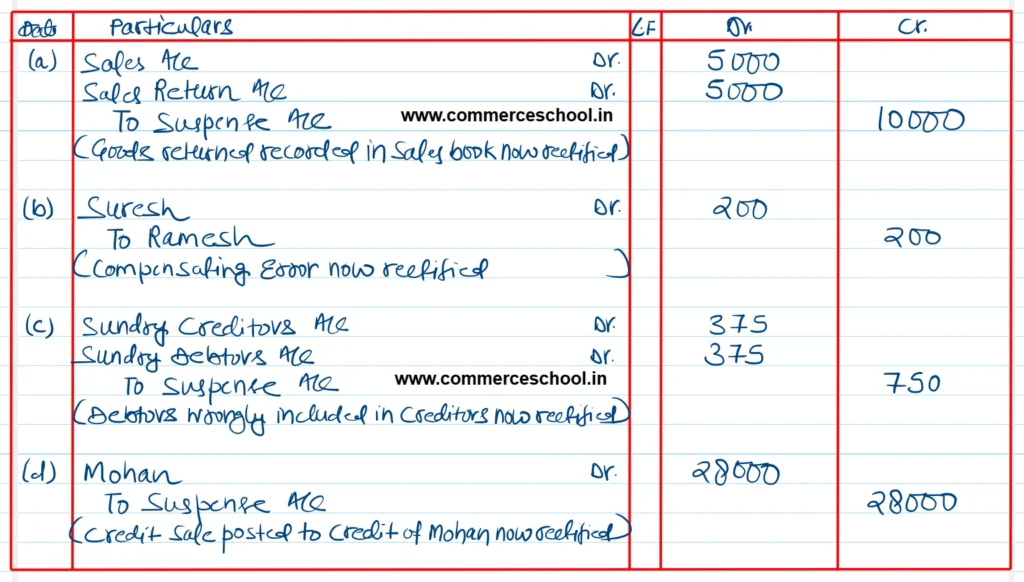 Date Particulars L.F Dr. Cr.
(a) Sales A/c Dr. 5000
Sales Return A/c Dr. 5000
To Suspense A/c www.commerceschool.in 10000
(Goods returned recorded in Sales book now rectified)
(b) Suresh Dr. 200
To Ramesh 200
(Compensating Error now rectified )
(c) Sundry Creditors A/c Dr. 375
Sundry Debtors A/c Dr. 375
To Suspense A/c www.commerceschool.in 750
(Debtors wrongly included in Creditors now rectified)
(d) Mohan Dr. 28000
To Suspense A/c 28000
(Credit Sale posted to Credit of Mohan now rectified)